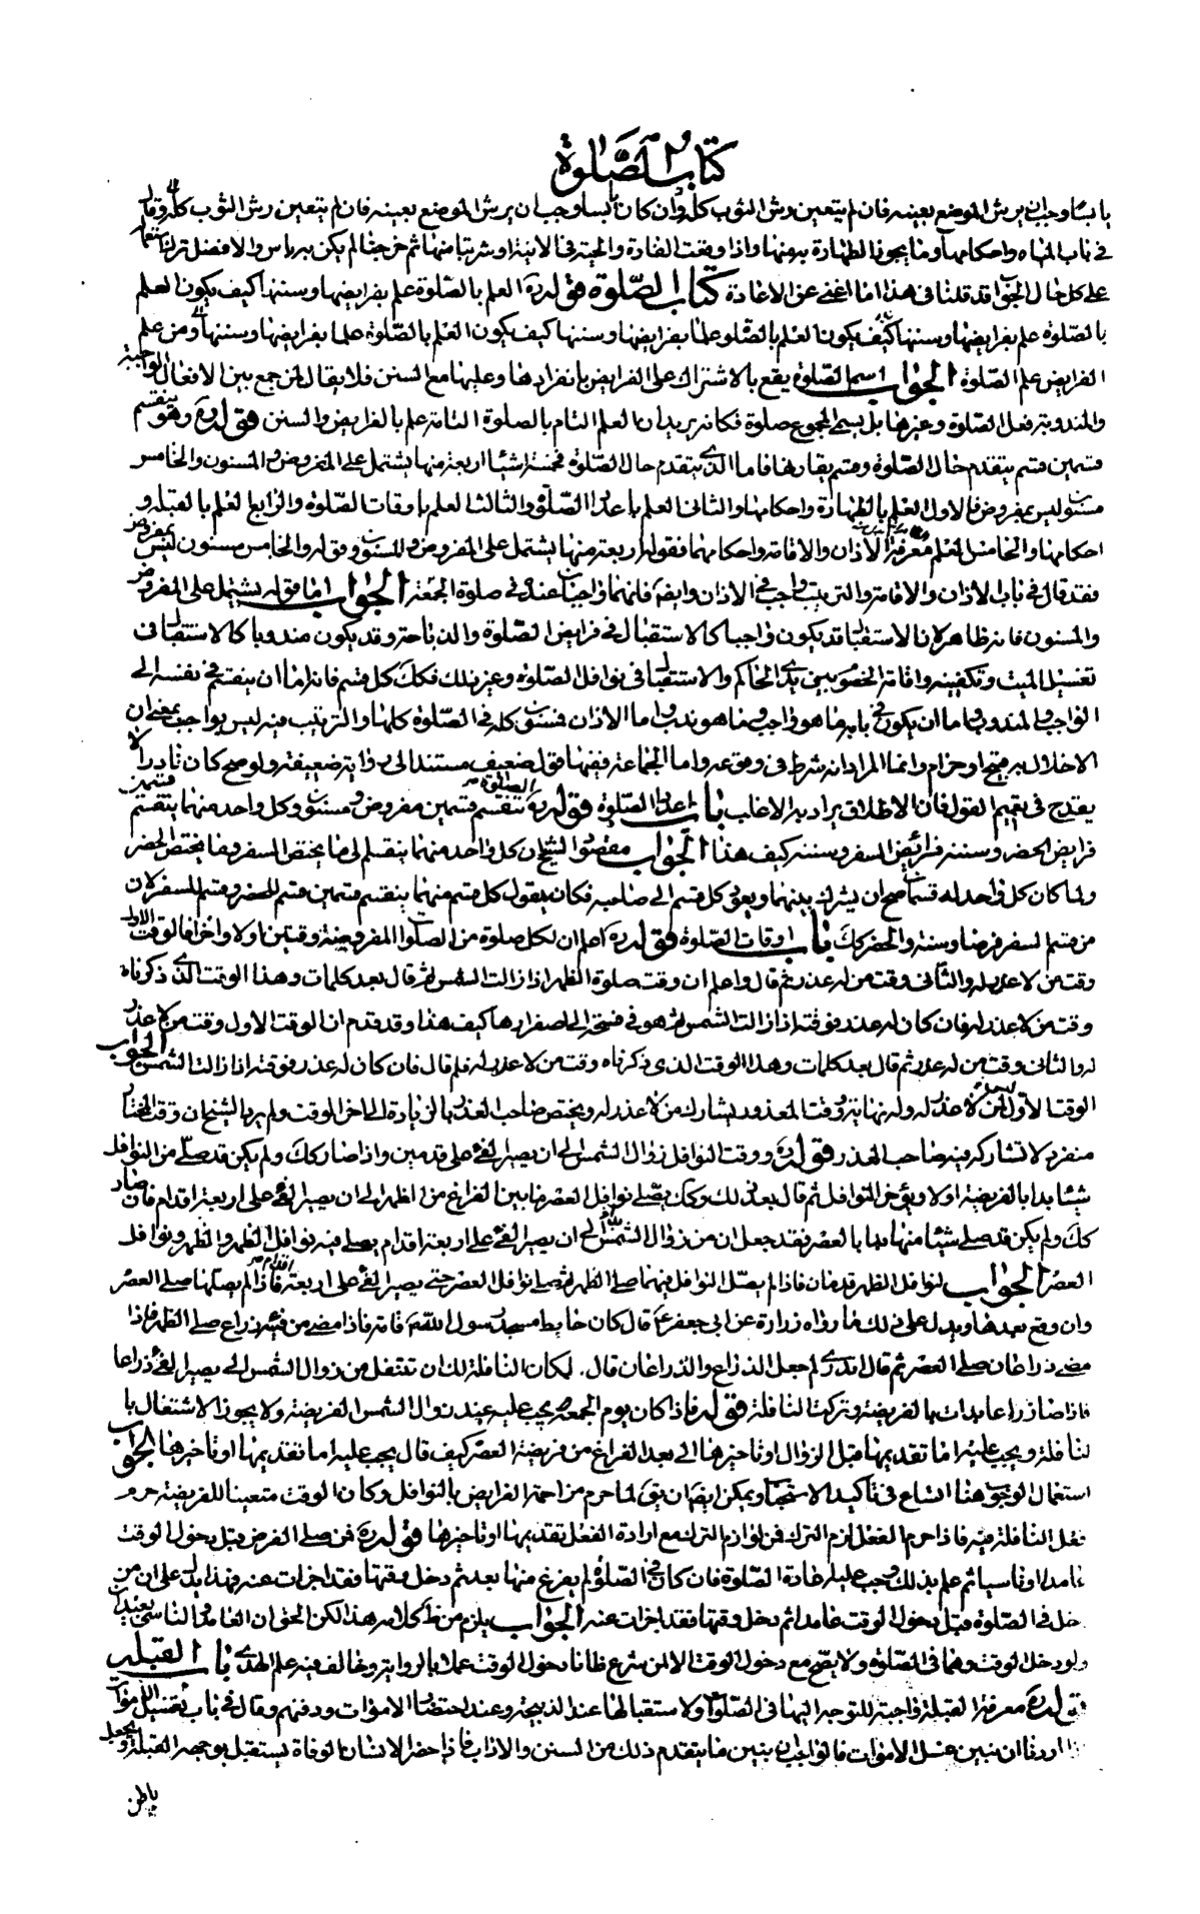 كتاب الصَّلوة
يابسا وجب ان يرش الموضع بعينه فان لم يتعين رش الثوب كله وان كان يابسا وجب ان يرش الموضع بعينه فان لم يتعين رش الثوب كله وقال
فى باب المياه واحكامها وما يجوز الطهارة به منها واذا وقعت الفارة والحية فى الانية او شربتا منها ثم خرجتا لم يكن به باس والافضل ترك استعماله
على كل حال الجواب قد قلنا فى هذا ما اغنى عن الاعادة كتاب الصّلوة قوله ره العلم بالصّلوة علم بفرايضها وسننها كيف يكون العلم
بالصلوة علم بفرايضها وسننها كيف يكون العلم بالصّلوة علما بفرايضها وسننها كيف يكون العلم بالصّلوة علما بفرايضها وسننها ومن علم
الفرايض علم الصّلوة الجواب اسم الصّلوة يقع بالاشتراك على الفرايض بانفرادها وعليها مع السنن فلا يقال لمن جمع بين الافعال الواجبة
والمندوبة فعل الصّلوة وغيرها بل يسمى المجموع صلوة فكانه يريد ان العلم التام بالصلوة التامة علم بالفرايض والسنن قوله ره وهو ينقسم
قسمين قسم يتقدم حال الصّلوة وقسم يقارنها فاما الذى يتقدم حال الصّلوة فخمسة اشياء اربعة منها يشتمل على المفروض والمسنون والخامس
مسنون ليس بمفروض فالاول العلم بالطهارة واحكامها والثانى العلم باعداد الصّلوة والثالث العلم باوقات الصّلوة والرابع العلم بالقبلة و
احكامها والخامس العلم بمعرفة الاذان والاقامة واحكامهما فقوله اربعة منها يشتمل على المفروض والمسنون وقوله والخامس مسنون ليس بمفروض
فقد قال فى باب الاذان والاقامة والترتيب واجب فى الاذان وايضا فانهما واجبان عنده فى صلوة الجمعة الجواب اما قوله يشتمل على المفروض
والمسنون فانه ظاهر لان الاستقبال قد يكون واجبا كالاستقبال فى فرايض الصّلوة والذباحة وقد يكون مندوبا كالاستقبال فى
تغسيل الميت وتكفينه واقامة الخصوم بين يدى الحاكم والاستقبال فى نوافل الصّلوة وغير ذلك فكك كل قسم فانه اما ان ينقسم فى نفسه الى
الواجب والمندوب واما ان يكون فى بابه ما هو واجب وما هو ندب واما الاذان فمسنون كله فى الصّلوة كلها والترتيب فيه ليس بواجب بمعنى ان
الاخلال به قبيح او حرام وانما المراد انه شرط فى وقوعه واما الجماعة ففيها قول ضعيف مستندا الى رواية ضعيفة ولو صح كان نادرا لا
يقدح فى تعميم القول فان الاطلاق يراد به الاغلب باب اعداد الصّلوة قوله ره الصلوة تنقسم قسمين مفروض ومسنون وكل واحد منهما ينقسم قسمين
فرايض الحضر وسننه فرائض السفر وسننه كيف هذا الجواب مقصود الشيخ ان كل واحد منهما ينقسم الى ما يختص السفر وما يختص الحضر
ولما كان كل واحد له قسمان صح ان يشرك بينهما ويعزى كل قسم الى صاحبه فكان يقول كل قسم منهما ينقسم قسمين قسم للحضر وقسم للسفر لان
من قسم السفر فرضا وسنة والحضر كك باب اوقات الصّلوة قوله ره اعلم ان لكل صلوة من الصلوات المفروضة وقتين اولا واخرا فالوقت الاول
وقت من لا عذر له والثانى وقت من له عذر ثم قال واعلم ان وقت صلوة الظهر اذا زالت الشمس ثم قال بعد كلمات وهذا الوقت الذى ذكرناه
وقت من لا عذر له فان كان له عذر فوقته اذا زالت الشمس ثم هو فى فسحة الى اصفرارها كيف هذا وقد قدم ان الوقت الاول وقت من لا عذر
له والثانى وقت من له عذر ثم قال بعد كلمات وهذا الوقت الذى ذكرناه وقت من لا عذر له فلم قال فان كان له عذر فوقته اذا زالت الشمس الجواب
الوقت الاول لمن لا عذر له وله نهاية ووقت المعذور يشارك من لا عذر له ويختص صاحب العذر بالزيادة الى اخر الوقت ولم يرد الشيخ ان وقت المختار
منفرد لا تشاركه فيه صاحب العذر قوله ره ووقت النوافل زوال الشمس الى ان يصير الفئ على قدمين واذا صار كك ولم يكن قد صلّى من النوافل
شيئا بدا بالفريضة اولا ويؤخر النوافل ثم قال بعد ذلك وكك يصلى نوافل العصر ما بين الفراغ من الظهر الى ان يصير الفئ على اربعة اقدام فان صار
كك ولم يكن قد صلى شيئا منها بدا بالعصر فقد جعل ان من زوال الشمس الى ان يصير الفئ على اربعة اقدام يصلى فيه نوافل الظهر والظهر ونوافل
العصر الجواب لنوافل الظهر قدمان فاذا لم يصل النوافل فيهما صلى الظهر ثم صلى نوافل العصر حتى يصير الفئ على اربعة اقدام فاذا لم يصلها صلى العصر
وان وقع بعدها ويدل على ذلك ما رواه زرارة عن ابى جعفر ع قال كان حايط مسجد رسول الله ص قامة فاذا مضى من فيئه ذراع صلى الظهر فاذا
مضى ذراعان صلى العصر ثم قال اتدرى لم جعل الذراع والذراعان قال. لمكان النافلة لك ان تتنفل من زوال الشمس الى يصير الفئ ذراعا
فاذا صار ذراعا بدات بالفريضة وتركت النافلة قوله فاذا كان يوم الجمعة يجب عليه عند زوال الشمس الفريضة ولا يجوز الاشتغال با
لنافلة ويجب عليه اما تقديمها قبل الزوال او تاخيرها الى بعد الفراغ من فريضة العصر كيف قال يجب عليه اما تقديمها او تاخيرها الجواب
استعمال الوجوب هنا اتساع فى تاكيد الاستحباب ويمكن ايضا ان يقال لما حرم مزاحمة الفرايض بالنوافل وكان الوقت متعينا للفريضة حرم
فعل النافلة فيه فاذا حرم الفعل لزم الترك فمن لوازم الترك مع ارادة الفعل تقديمها او تاخيرها قوله ره فمن صلى الفرض قبل دخول الوقت
عامدا او ناسيا ثم علم بذلك وجب عليه اعادة الصّلوة فان كان فى الصّلوة لم يفرغ منها بعد ثم دخل وقتها فقد اجزات عنه فهذا يدل على ان من
دخل فى الصّلوة قبل دخول الوقت عامدا ثم دخل وقتها فقد اجزات عنه الجواب يلزم من ظ كلامه هذا لكن الحق ان العامد والناسى يعيدان
ولو دخل الوقت وهما فى الصّلوة ولا يصح مع دخول الوقت الا لمن شرع ظانا دخول الوقت عملا بالرواية وخالف فيه علم الهدى باب القبلة
قوله ره معرفة القبلة واجبة للتوجه اليها فى الصّلوة ولاستقبالها عند الذبيحة وعند احتضار الاموات ودفنهم وقال فى باب تغسيل الاموات
اذا اردنا ان نبين غسل الاموات فالواجب ان نبين ما يتقدم ذلك من السنن والاداب فاذا حضر الانسان الوفاة يستقبل بوجهه القبلة ويجعل
باطن